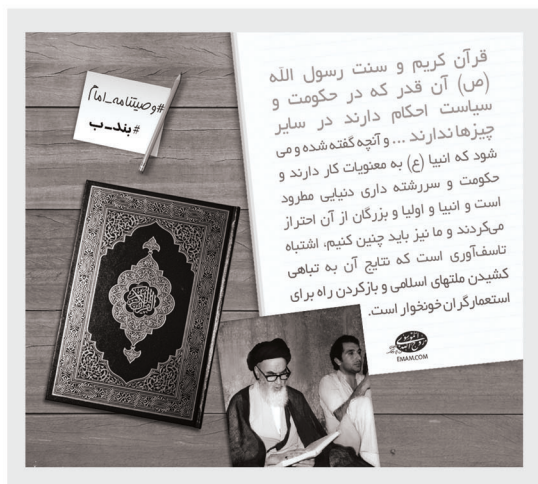 قرآن کریم و سنت رسول الله
(ص) آن قدر که در حکومت و
سیاست احکام دارند در سایر
چیزها ندارند ... و آنچه گفته شده و می
شود که انبیا (ع) به معنویات کار دارند و
حکومت و سررشته داری دنیایی مطرود
است و انبیا و اولیا و بزرگان از آن احتراز
می‌کردند و ما نیز باید چنین کنیم، اشتباه
تاسف‌آوری است که نتایج آن به تباهی
کشیدن ملتهای اسلامی و بازکردن راه برای
استعمارگران خونخوار است.
#وصیتنامه_امام
#بند_ب
EMAM.COM